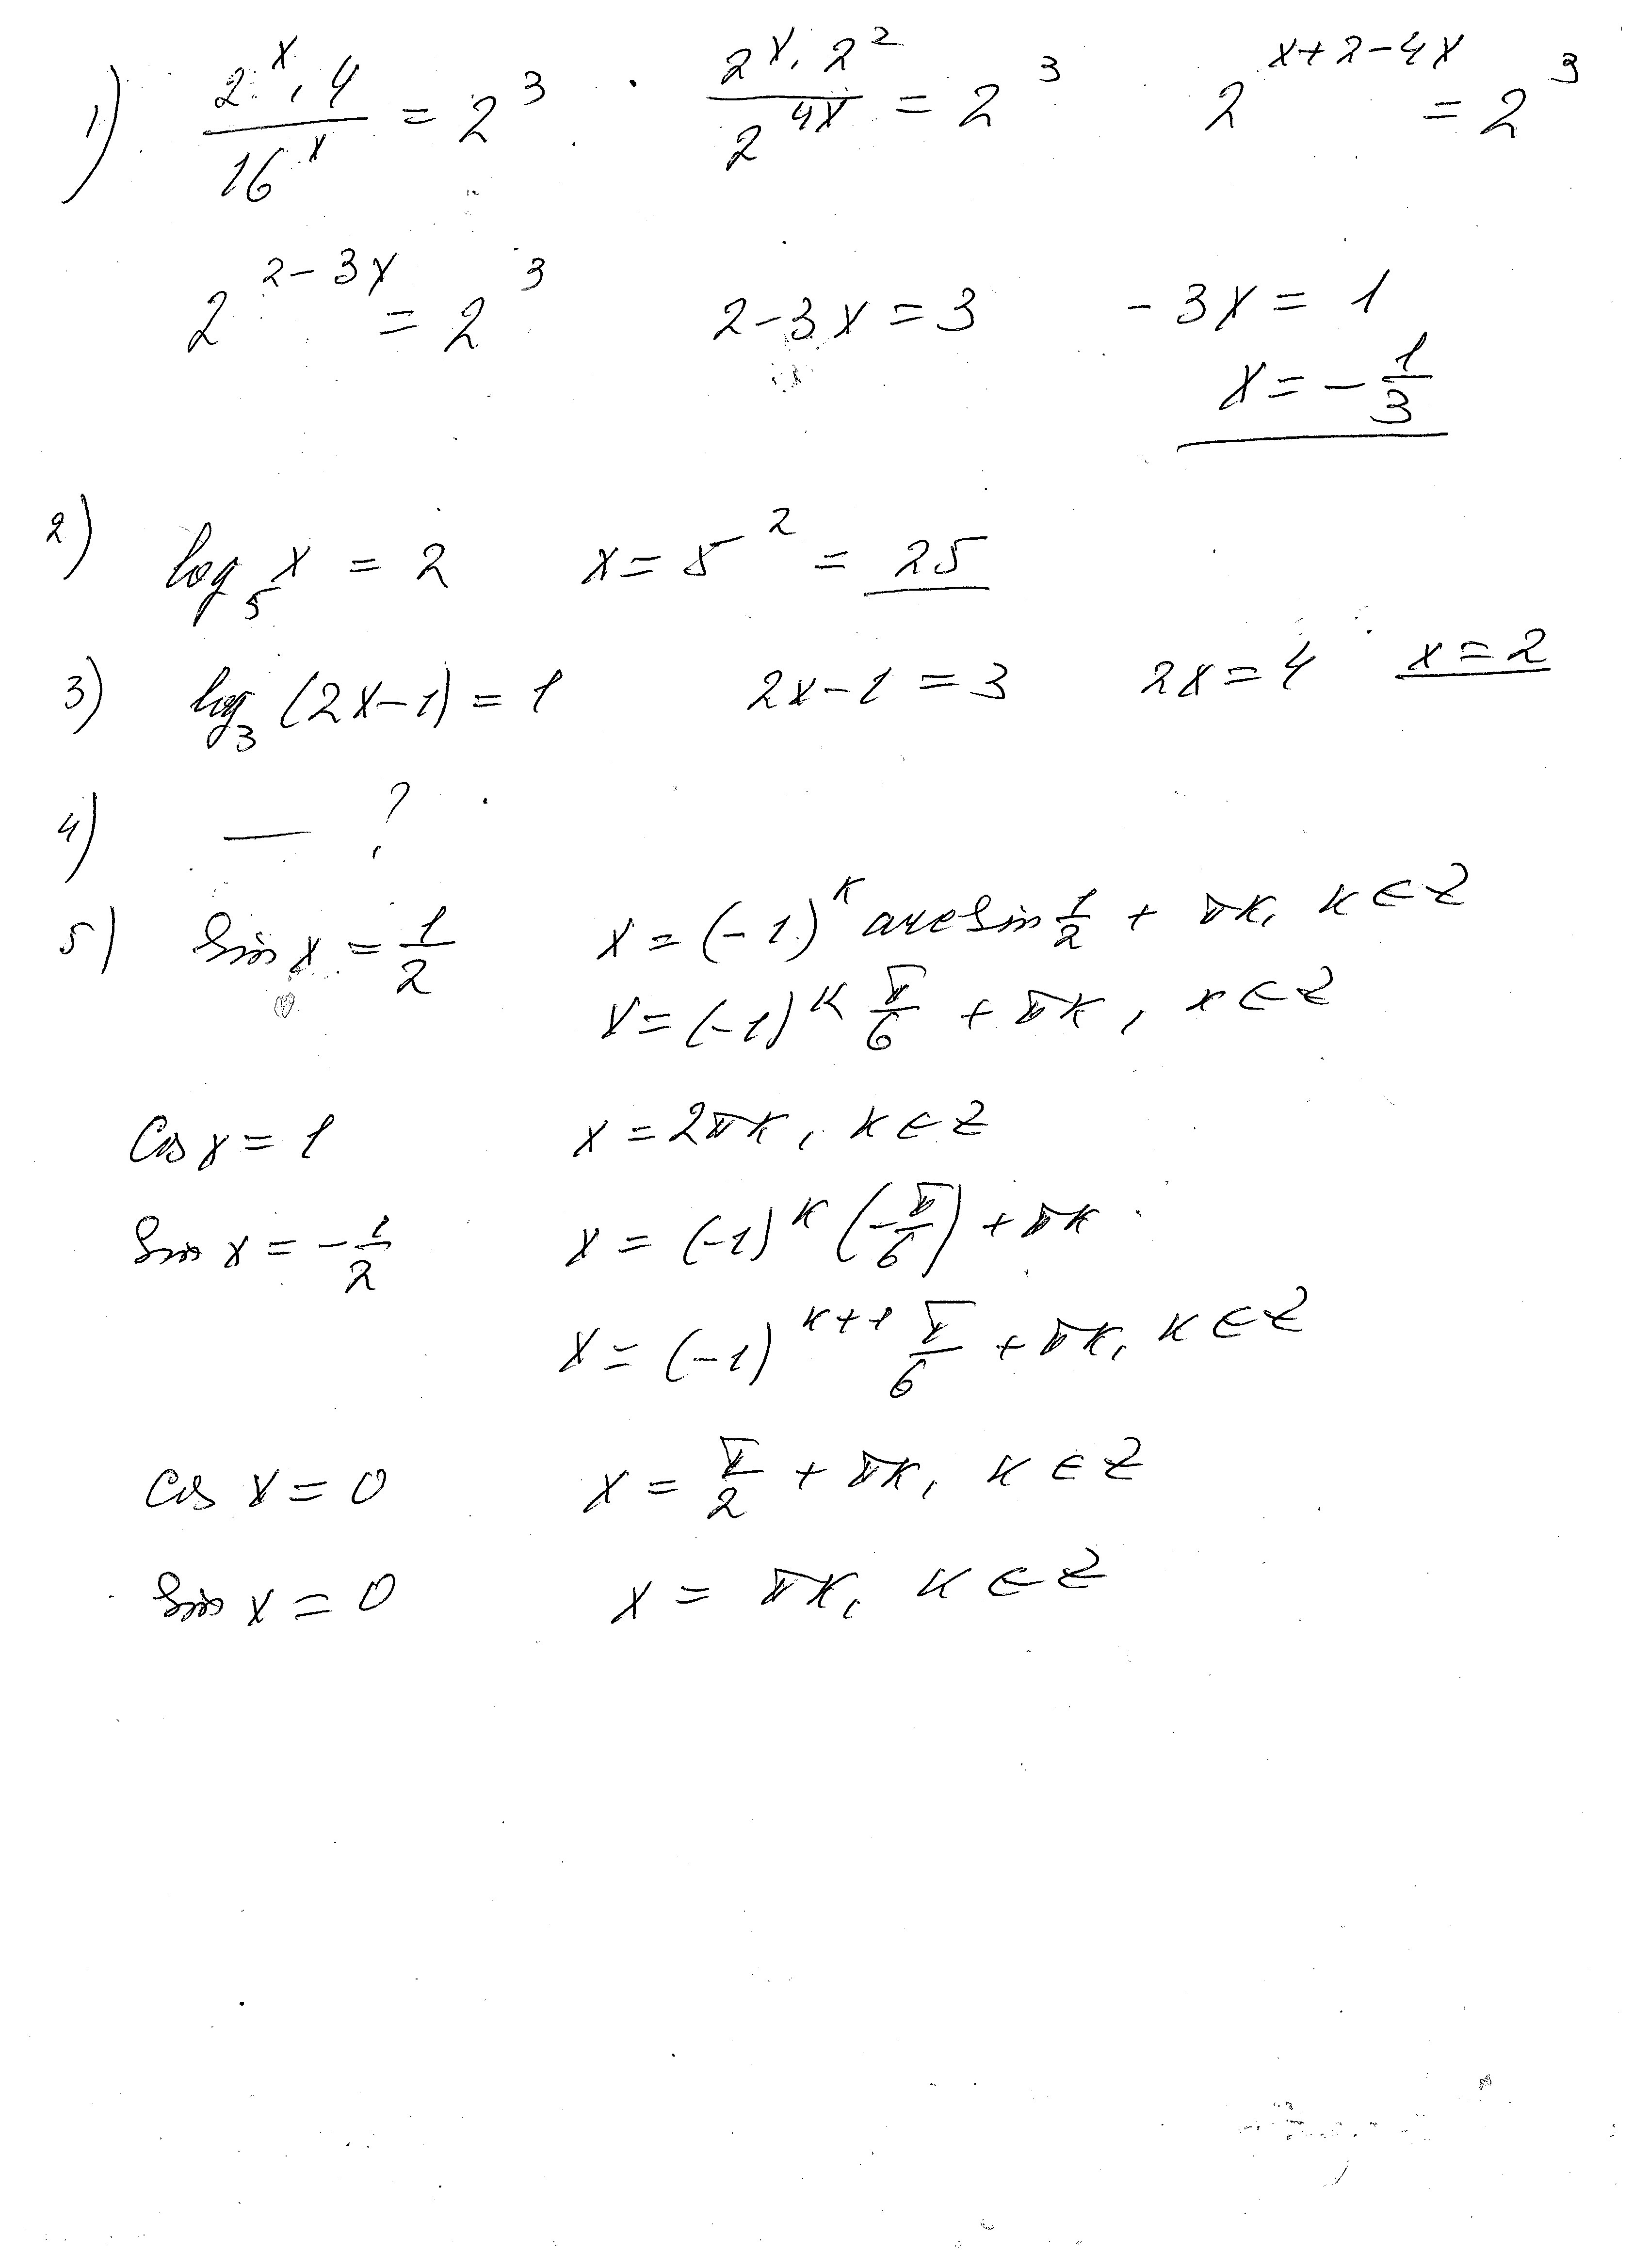 1) (2^x · 4)/(16^x) = 2^3 (2^x · 2^2)/(2^(4x)) = 2^3 2^(x+2-4x) = 2^3
2^(2-3x) = 2^3 2-3x = 3 -3x = 1
x = -1/3
2) log_5 x = 2 x = 5^2 = 25
3) log_3 (2x-1) = 1 2x-1 = 3 2x = 4 x = 2
4) — ?
5) sin x = 1/2 x = (-1)^k arcsin 1/2 + πk, k ∈ Z
x = (-1)^k π/6 + πk, k ∈ Z
cos x = 1 x = 2πk, k ∈ Z
sin x = -1/2 x = (-1)^k (-π/6) + πk
x = (-1)^(k+1) π/6 + πk, k ∈ Z
cos x = 0 x = π/2 + πk, k ∈ Z
sin x = 0 x = πk, k ∈ Z